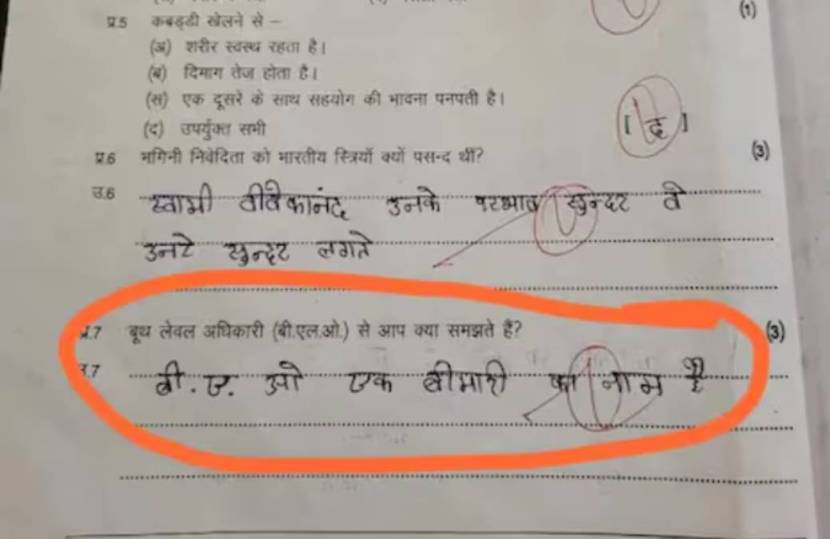 (1)
प्र.5 कबड्डी खेलने से –
(अ) शरीर स्वस्थ रहता है।
(ब) दिमाग तेज होता है।
(स) एक दूसरे के साथ सहयोग की भावना पनपती है।
(द) उपर्युक्त सभी
[ द ]
प्र.6 भगिनी निवेदिता को भारतीय स्त्रियाँ क्यों पसन्द थीं? (3)
उ.6 स्वामी वीवेकानंद उनके परभाव सुन्दर वे
उनटे सुन्दर लगते
प्र.7 बूथ लेवल अधिकारी (बी.एल.ओ.) से आप क्या समझते हैं? (3)
उ.7 बी.ए. ओ एक बीमारी का नाम है